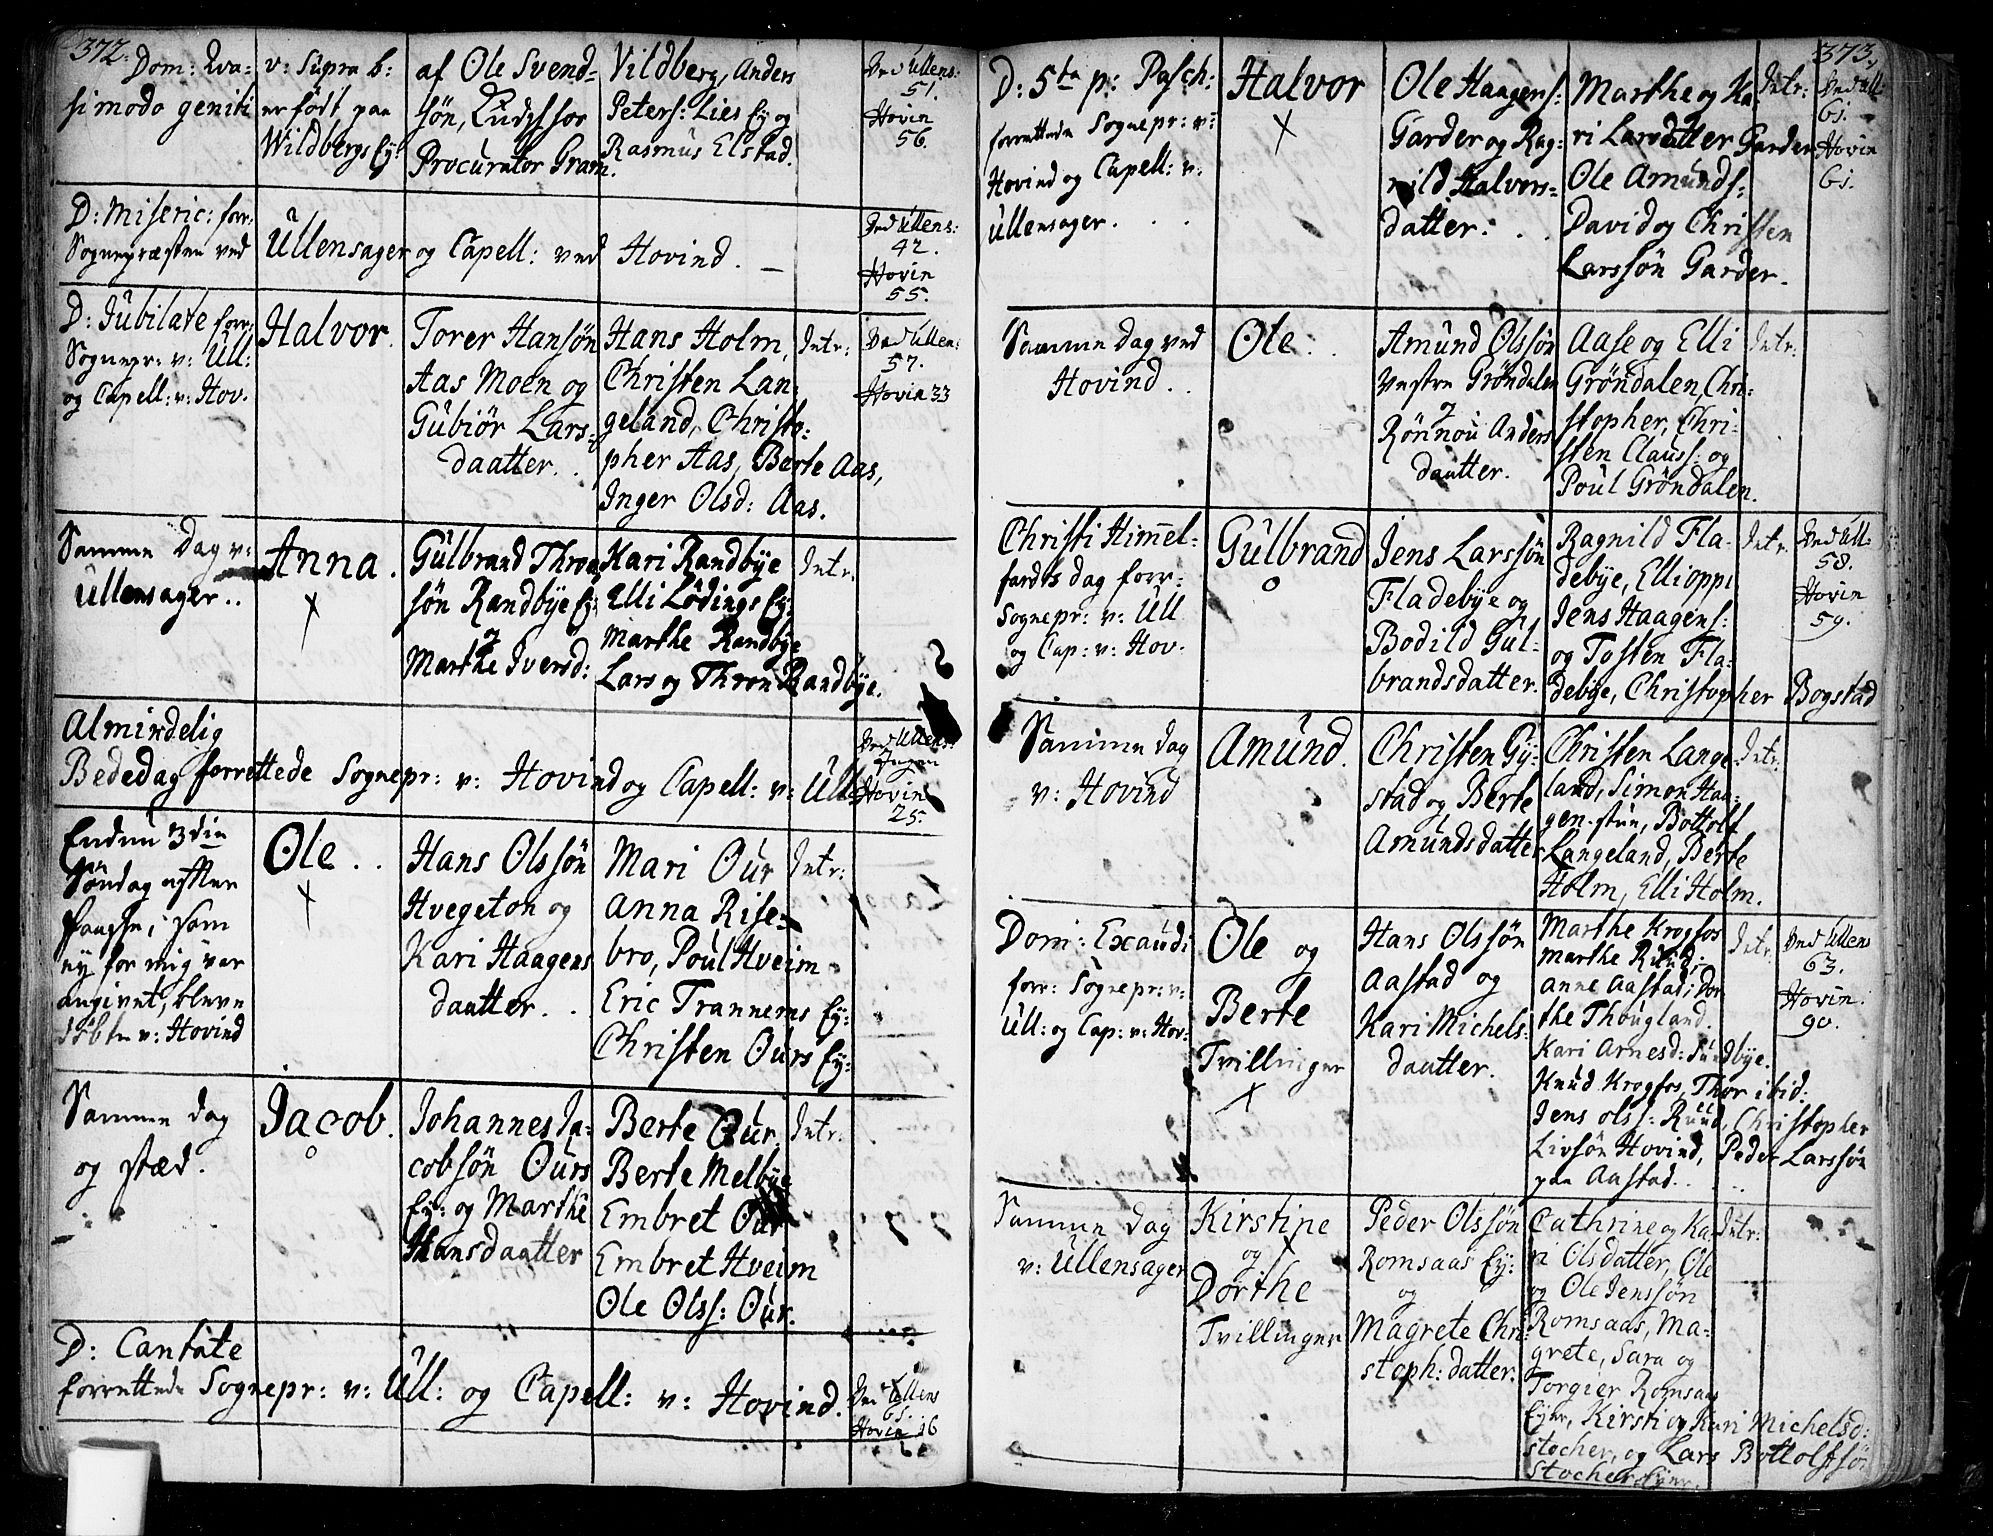 372.
Dom: Qva-
simodo geniti
v: Supra b:
er født paa
Wildbergs Ey:
af Ole Svend-
søn,
Procurator Gram.
Vildberg, Anders
Peters: Lies Ey og
Rasmus Elstad.
Ved Ullens:
51.
Hovin
56.
D: Miseric: forr:
Sognepræsten ved Ullensager og Capell: ved Hovind.
Ved Ullens:
42.
Hovin
55.
D: Jubilate forr:
Sognepr: v: Ull:
og Capell: v: Hov.
Halvor.
Torer Hansøn
Aas Moen og
Gubiør Lars-
daatter.
Hans Holm,
Christen Lan-
geland, Christo-
pher Aas, Berte Aas,
Inger Olsd: Aas.
Intr:
Ved Ullens:
57.
Hovin 33
Samme Dag v:
Ullensager..
Anna.
X
Gulbrand Thron
søn Randbye Ey:
og
Marthe Iversd:
Kari Randbye
Elli Lödings Ey:
Marthe Randbye
Lars og Thron Randbye.
Intr.
Almindelig
Bededag forrettede Sognepr: v: Hovind og Capell: v: Ull:
Ved Ullens:
Ingen
Hovin
25.
Endnu 3die
Søndag efter
Paaske, som
ey for mig var
angivet, bleve
döbte v: Hovind
Ole..
X
Hans Olssøn
Hvegeton og
Kari Haagens
daatter..
Mari Our
Anna Rise-
bro, Poul Hveim
Eric Trannems Ey:
Christen Ours Ey:
Intr:
Samme dag
og stæd.
Jacob.
o
Johannes Ja-
cobsøn Ours
Ey: og Marthe
Hansdaatter
Berte Our
Berte Melbye
Embret Our
Embret Hveim
Ole Olss: Our.
Intr:
D: Cantate
forrettede Sognepr: v: Ull: og Capell: v: Hovind.
Ved Ullens
61.
Hovin 16
373.
D: 5ta p: Pasch:
forrettede Sognepr: v:
Hovind og Capell: v:
Ullensager...
Halvor
X
Ole Haagens:
Garder og Rag-
nild Halvors-
datter:..
Marthe og Ka-
ri Larsdatter Garder
Ole Amunds:
David og Christen
Larssøn Garder.
Intr:
Ved Ull:
61.
Hovin
61.
Samme Dag ved
Hovind..
Ole..
Amund Olssøn
Vestre Grøndalen
og
Rønnou Anders
daatter.
Aase og Elli
Grøndalen, Chri-
stopher, Chri-
sten Clauss: og
Poul Grøndalen.
Intr:
Christi Himmel-
fardts dag forr:
Sognepr: v: Ull
og Cap: v: Hov.
Gulbrand
o
Jens Larssøn
Fladebye og
Bodild Gul-
brandsdatter.
Ragnild Fla-
debye, Elli oppi
Jens Haagens:
og Tosten Fla-
debye, Christopher Bogstad
Intr.
Ved Ull:
58.
Hovin
59.
Samme dag
v: Hovind
Amund.
Christen Gy-
stad og Berte
Amundsdatter
Christen Lange-
land, Simon Haa-
gen-stun, Bottolf
Langeland, Berte
Holm, Elli Holm.
Intr.
Dom: Exaudi
forr: Sognepr: v:
Ull: og Cap: v: Hov.
Ole og
Berte
Tvillinger
X
Hans Olssøn
Aastad og
Kari Michels:
daatter.
Marthe Krogfos
Marthe Ruud;
Anne Aastad; Dor
the Thougland.
Kari Arnesd: Sundbye.
Knud Krogfos, Thor ibid:
Jens Olss: Ruud, Christopher
Livsøn Hovind, Peder Larssøn
paa Aastad..
Intr.
Ved Ullens
63.
Hovin.
90.
Samme Dag
v: Ullensager
Kirstine
og
Dorthe
Tvillinger
Peder Olssøn
Romsaas Ey:
og
Magrete Chri-
stoph: datter.
Cathrine og Ka-
ri Olsdatter, Ole
og Ole Jenssøn
Romsaas, Ma-
grete, Sara og
Torgier Romsaas
Eyer, Kirsti og Kari Michelsd:
stocher, og Lars Bottolfsøn
Stocher Eyer.
Intr: